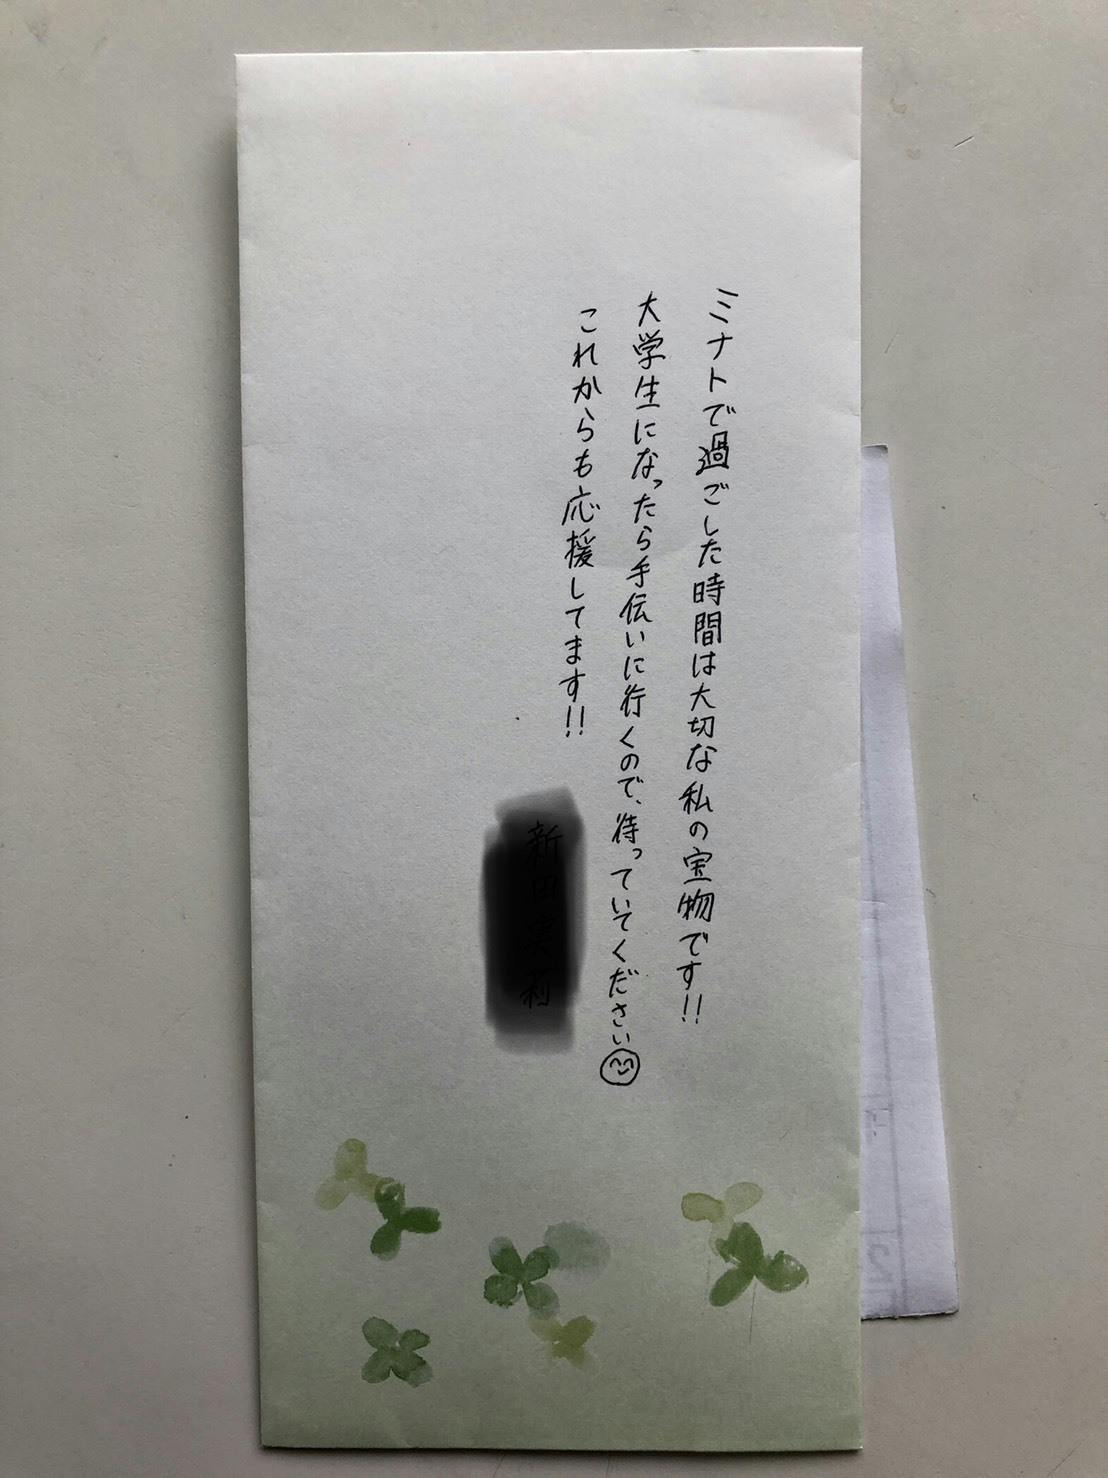 ミナトで過ごした時間は大切な私の宝物です!!
大学生になったら手伝いに行くので、待っていてください
これからも応援してます!!